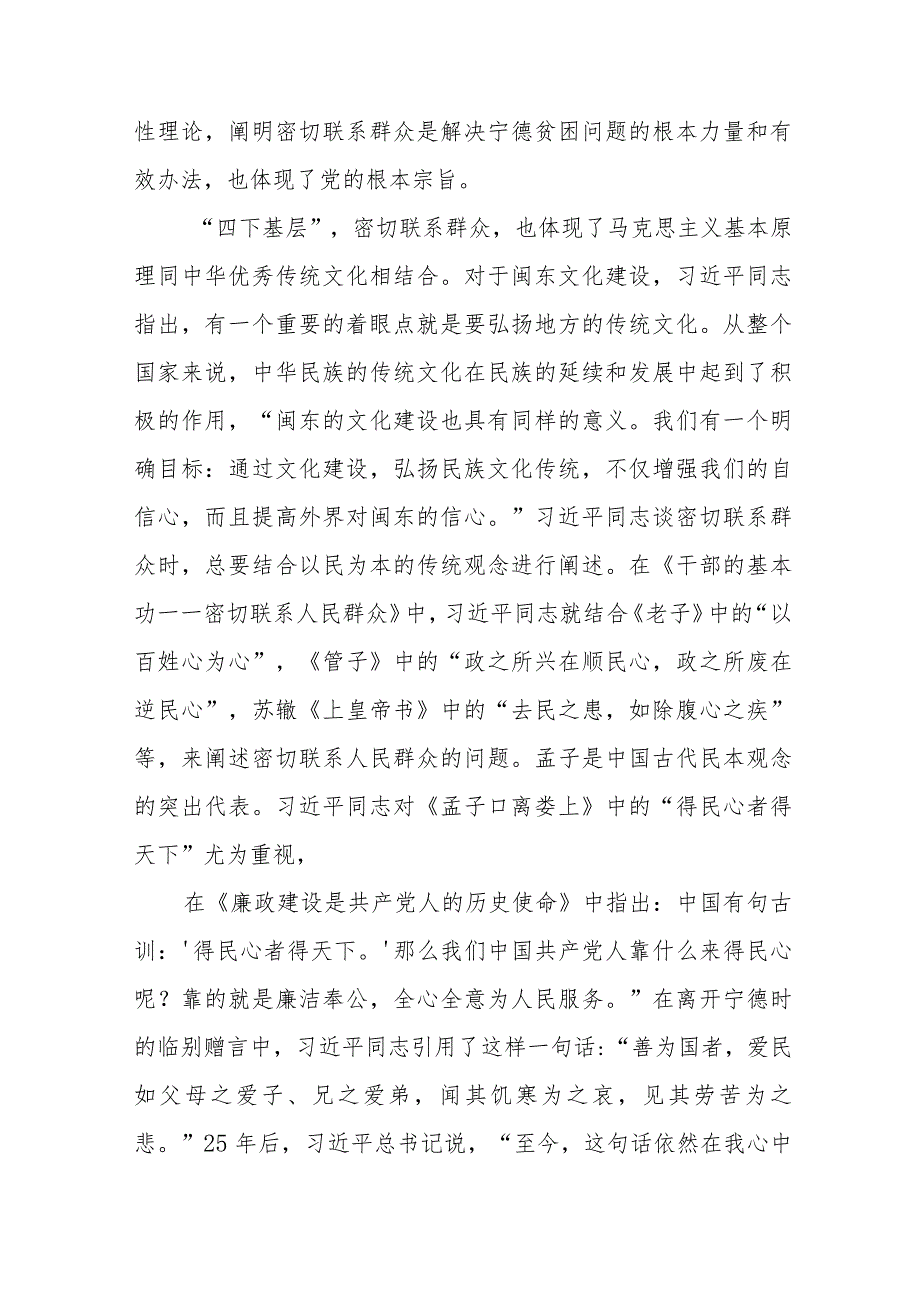 性理论，阐明密切联系群众是解决宁德贫困问题的根本力量和有
效办法，也体现了党的根本宗旨。
“四下基层”，密切联系群众，也体现了马克思主义基本原
理同中华优秀传统文化相结合。对于闽东文化建设，习近平同志
指出，有一个重要的着眼点就是要弘扬地方的传统文化。从整个
国家来说，中华民族的传统文化在民族的延续和发展中起到了积
极的作用，“闽东的文化建设也具有同样的意义。我们有一个明
确目标：通过文化建设，弘扬民族文化传统，不仅增强我们的自
信心，而且提高外界对闽东的信心。”习近平同志谈密切联系群
众时，总要结合以民为本的传统观念进行阐述。在《干部的基本
功一一密切联系人民群众》中，习近平同志就结合《老子》中的“以
百姓心为心”，《管子》中的“政之所兴在顺民心，政之所废在
逆民心”，苏辙《上皇帝书》中的“去民之患，如除腹心之疾”
等，来阐述密切联系人民群众的问题。孟子是中国古代民本观念
的突出代表。习近平同志对《孟子口离娄上》中的“得民心者得
天下”尤为重视，
在《廉政建设是共产党人的历史使命》中指出：中国有句古
训：'得民心者得天下。'那么我们中国共产党人靠什么来得民心
呢？靠的就是廉洁奉公，全心全意为人民服务。”在离开宁德时
的临别赠言中，习近平同志引用了这样一句话：“善为国者，爱民
如父母之爱子、兄之爱弟，闻其饥寒为之哀，见其劳苦为之
悲。”25 年后，习近平总书记说，“至今，这句话依然在我心中